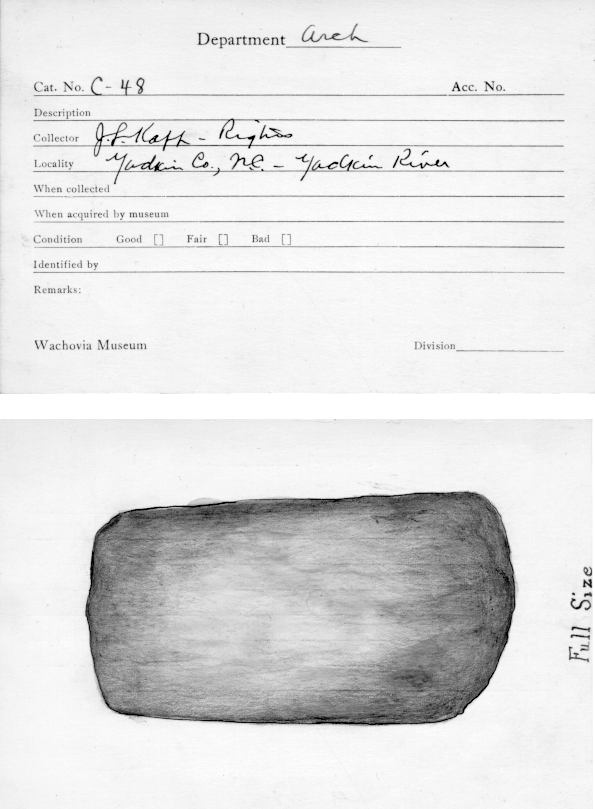 Department arch
Cat. No. C-48 Acc. No.
Description
Collector J.P. Kapp - Rights
Locality Yadkin Co., N.C. - Yadkin River
When collected
When acquired by museum
Condition Good [] Fair [] Bad []
Identified by
Remarks:
Wachovia Museum Division
Full Size